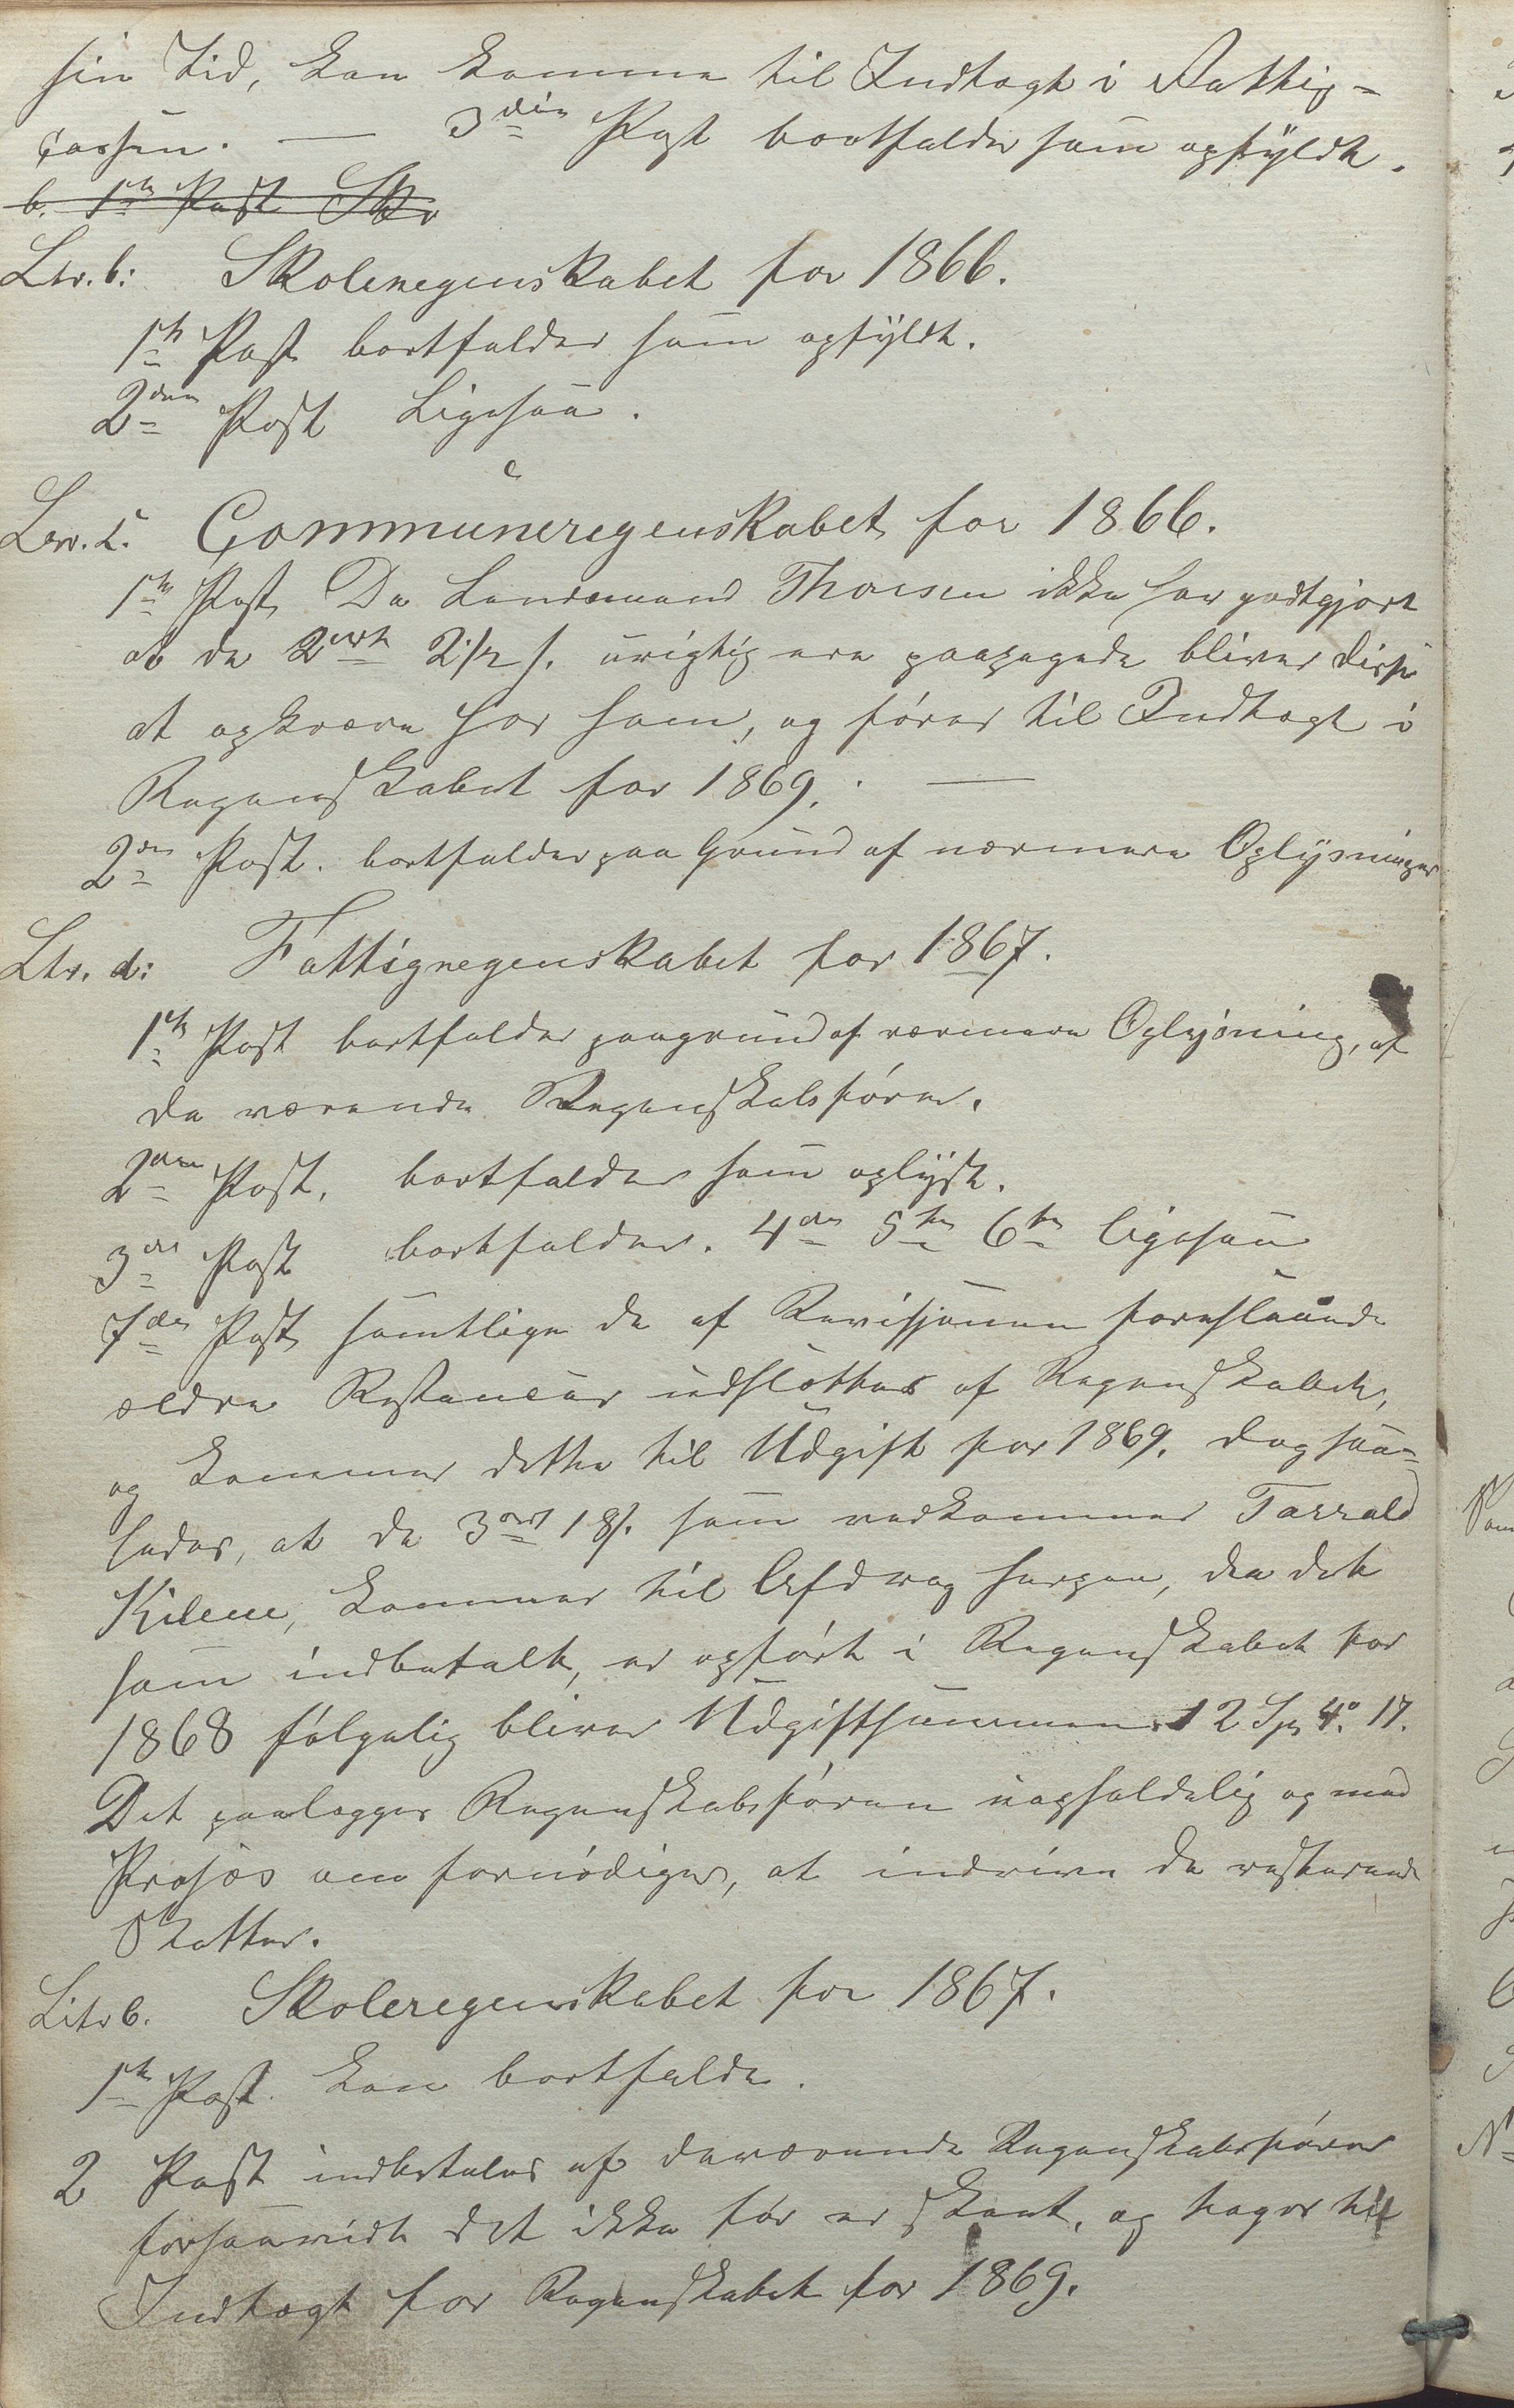 sin Tid, kan komme til Indtægt i Fattig-
cassen. — 3die Post bortfalder som opfyldt.
b. 1ste Post Sko
Ltr. b: Skoleregenskabet for 1866.
1ste Post bortfalder som opfyldt.
2den Post Ligesaa.
Ltr. c. Communeregenskabet for 1866.
1ste Post Da Lensmand Thorsen ikke har godtgjort
at de 2 ort 2 1/2 s. urigtig ere paagegede bliver disse
at opkræve hos ham, og föres til Indtægt i
Regenskabet for 1869. —
2den Post. bortfalder paa Grund af nærmere Oplysninger
Ltr. d: Fattigregenskabet for 1867.
1ste Post bortfalder paagrund af nærmere Oplysning, af
da værende Regenskabsförer.
2den Post, bortfalder som oplyst.
3die Post bortfalder. 4de 5te 6te ligesaa
7de Post samtlige de af Revisjonen foreslaaede
ældre Restancer udslettes af Regenskabet,
og kommer dette til Udgift for 1869. dog saa-
ledes, at de 3 ort 18 s. som vedkommer Tarrald
Kilene, kommer til Afdrag herpaa, da det
som indbetalt, er opfört i Regenskabet for
1868 fölgelig bliver Udgiftsummen 12 Sp 4 o. 17.
Det paalægges Regenskabsföreren uopholdelig og med
Prosjes om fornödiges, at inddrive de resterende
Skatter.
Litr b. Skoleregenskabet for 1867.
1ste Post. kan bortfalde.
2 Post indbetales af daværende Regenskabsförer
forsaavidt det ikke för er skeet, og tages til
Indtægt for Regenskabet for 1869.